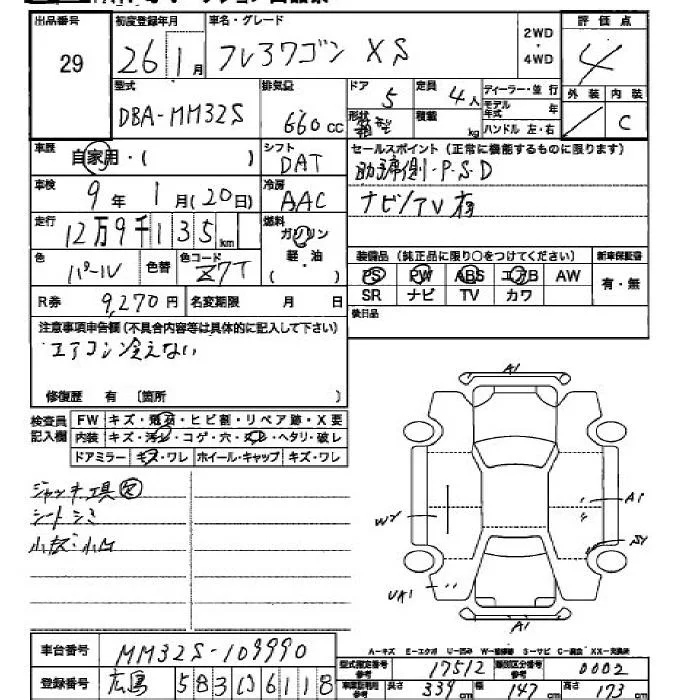 出品番号 初度登録年月 車名・グレード 評価点
29 26年1月 フレアワゴン XS 2WD・4WD 4
型式 排気量 ドア 定員 ディーラー・並行 外装 内装
DBA-MM32S 660cc 5 4人 モデル年式 年 C
形状 箱型 積載 kg ハンドル 左・右
車歴 自家用・( ) シフト DAT セールスポイント (正常に機能するものに限ります)
助手席側・P.S.D
車検 9年 1月(20日) 冷房 AAC
ナビ/AV有
走行 12万9千135km 燃料 ガソリン 軽・油 ( )
色 パール 色替 色コード Z7T
装備品 (純正品に限り○をつけてください) 新車保証書
PS PW ABS エアB AW 有・無
SR ナビ TV カワ
R券 9,270円 名変期限 月 日
後日品
注意事項申告欄 (不具合内容等は具体的に記入して下さい)
エアコン冷えない
修復歴 有 [箇所 ]
検査員記入欄
FW キズ・飛石・ヒビ割・リペア跡・X要
内装 キズ・汚レ・コゲ・穴・スレ・ヘタリ・破レ
ドアミラー キズ・ワレ ホイール・キャップ キズ・ワレ
ジャッキ工具欠
シートシミ
小B・小凹
A1
A1
WY
SY
UA1
A1
A-キズ E-エクボ U-凹み W-補修跡 S-サビ C-腐食 XX-交換済
車台番号 MM32S-109990
登録番号 広島 583 6118
型式指定番号 参考 17512 類別区分番号 参考 0002
車検証利用 参考 長さ 339cm 幅 147cm 高さ 173cm